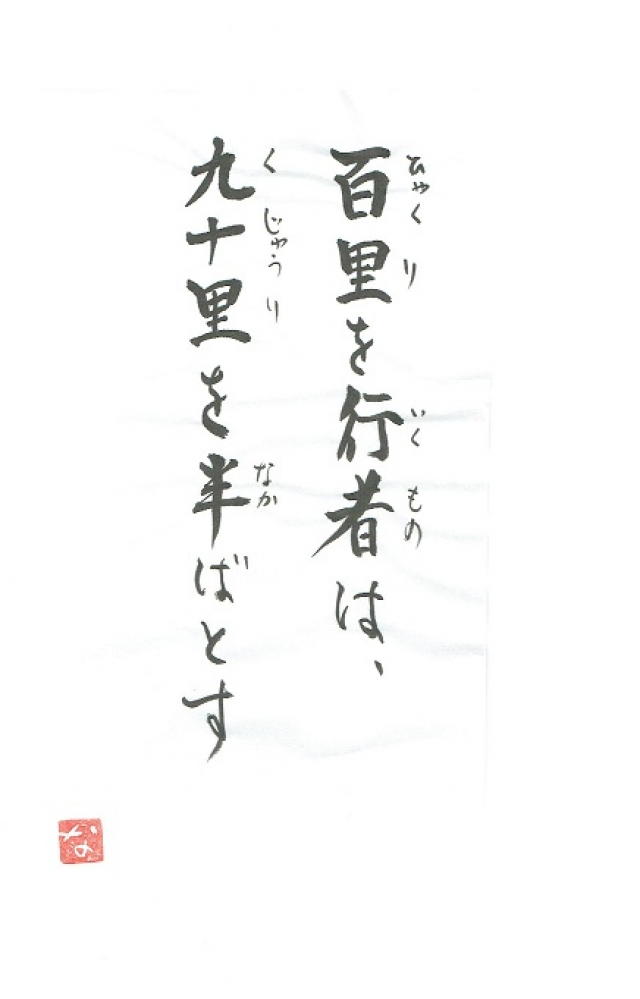 ひゃくり いくもの
百里を行者は、
くじゅうり なか
九十里を半ばとす
な